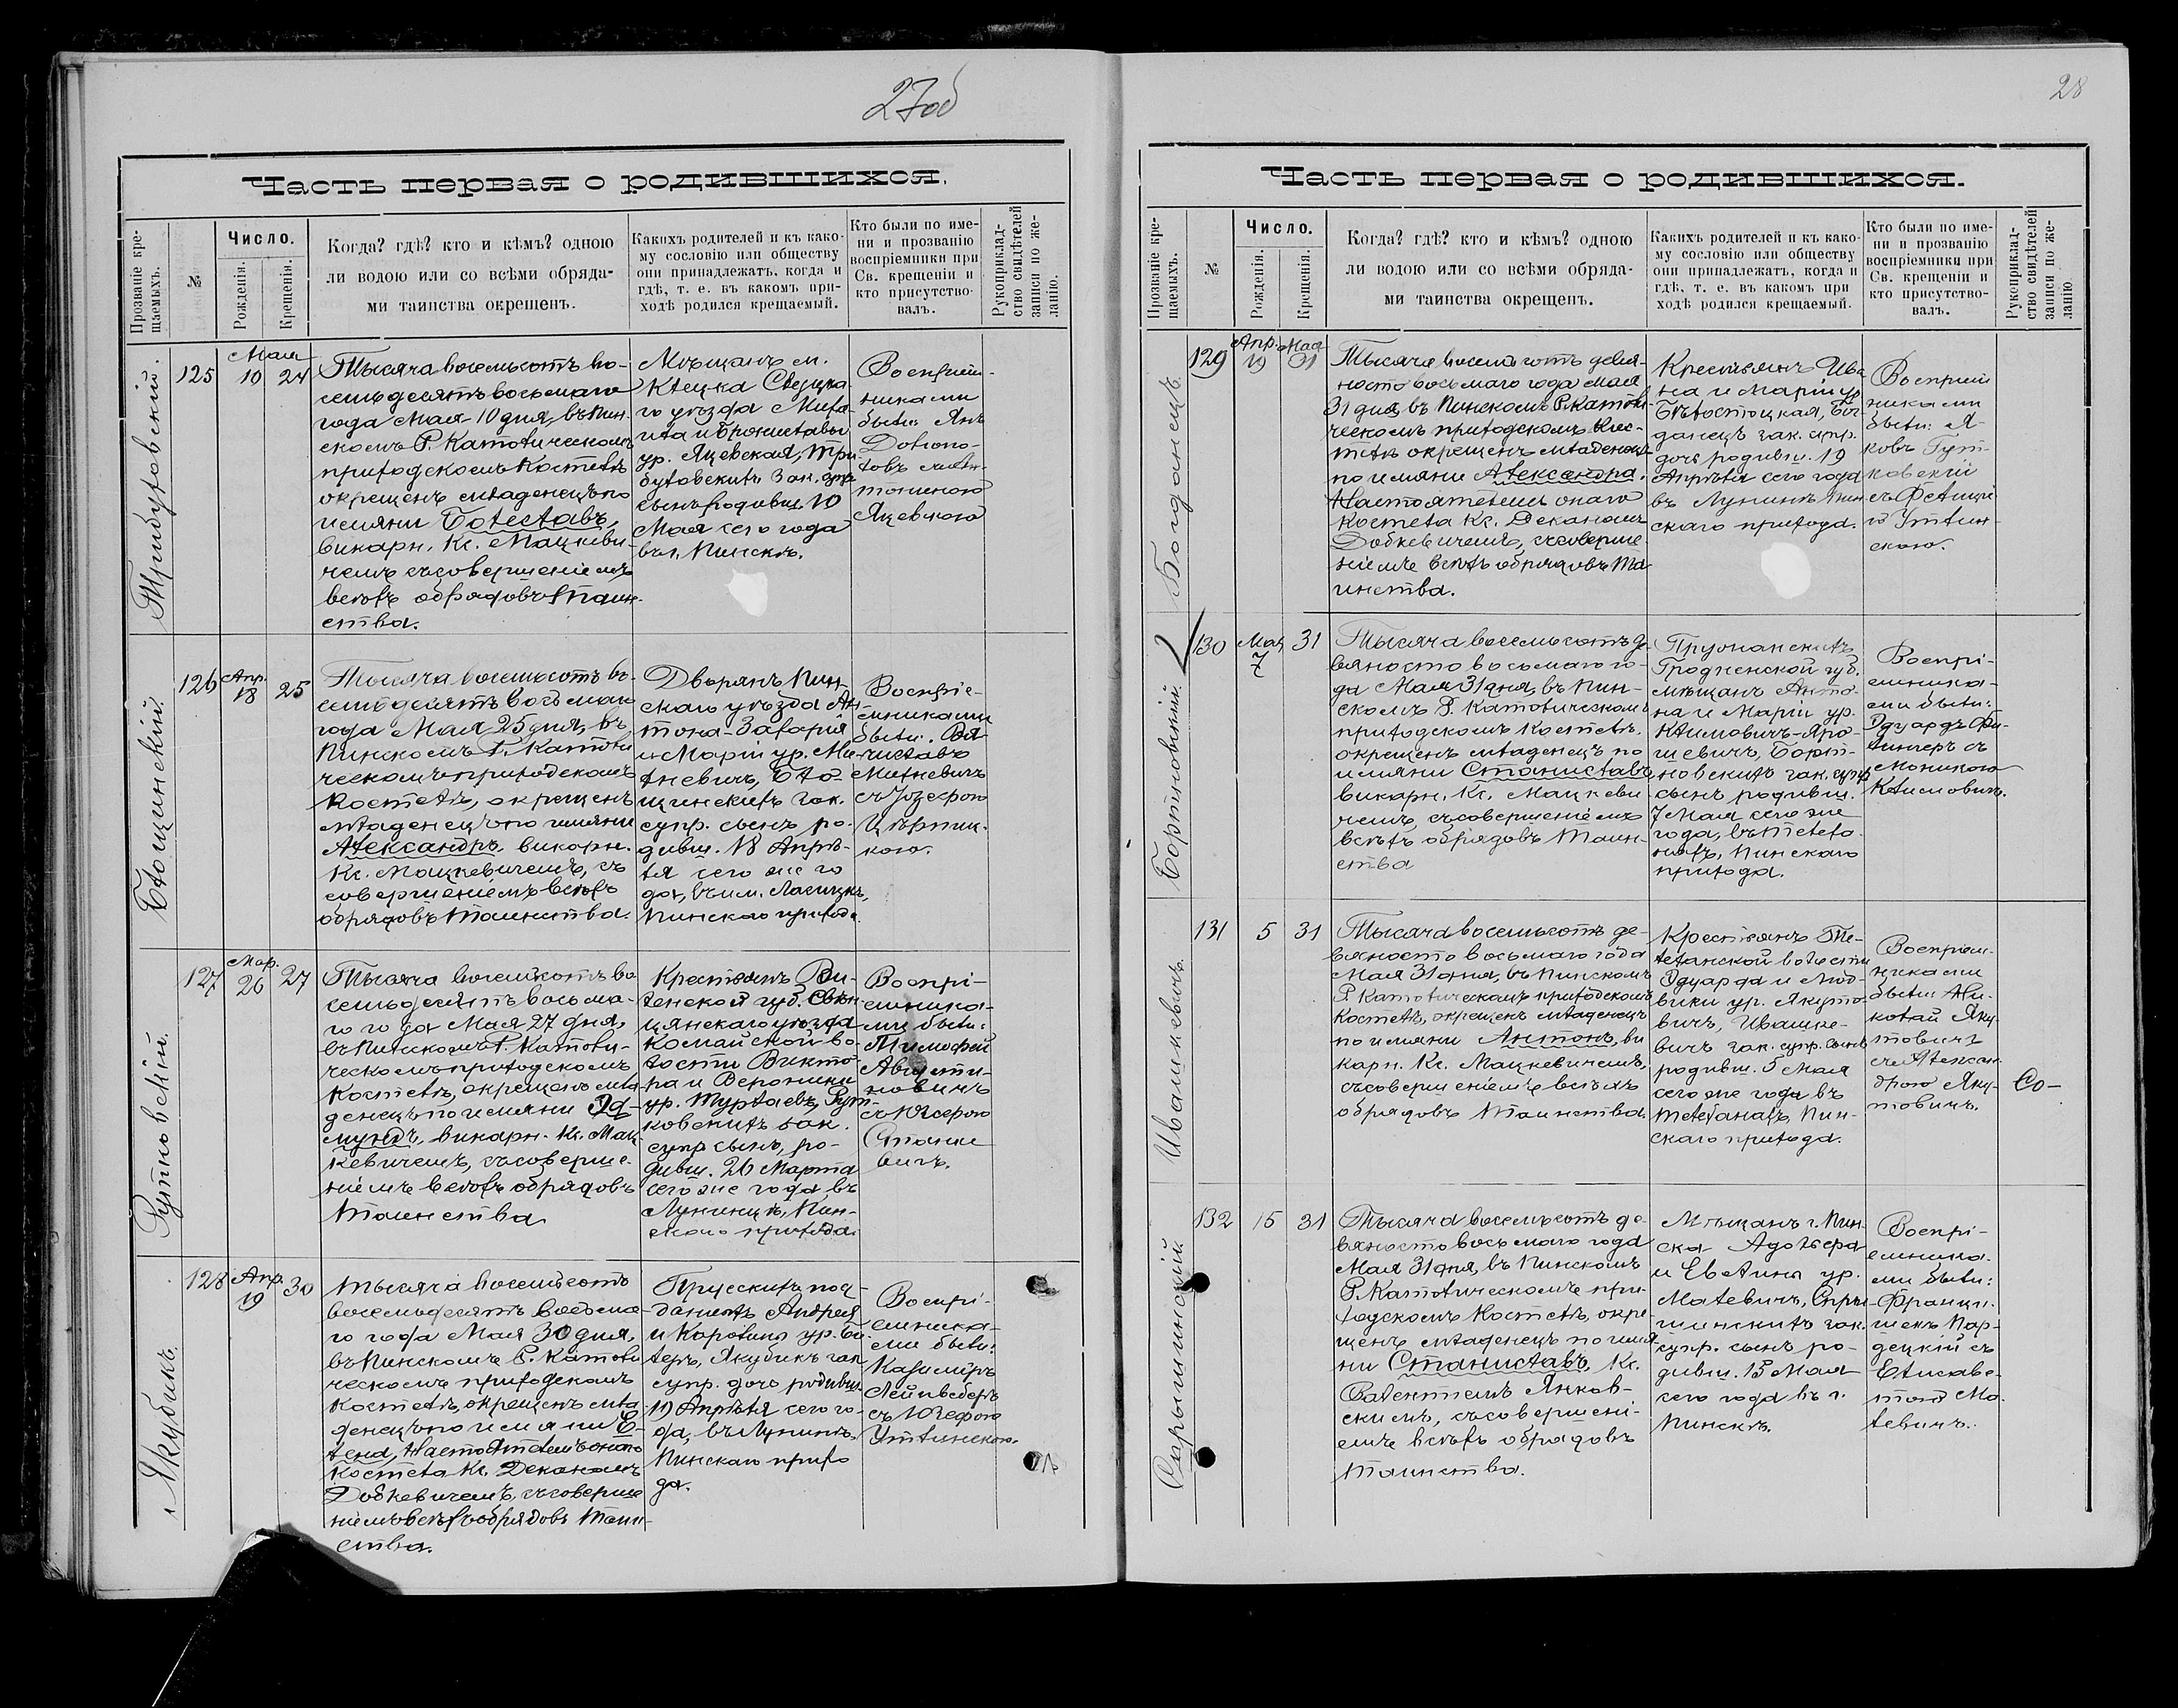 27об
Часть первая о родившихся.
Прозваніе кре-
щаемыхъ.
№
Число.
Рожденія.
Крещенія.
Когда? гдѣ? кто и кѣмъ? одною
ли водою или со всѣми обряда-
ми таинства окрещенъ.
Какихъ родителей и къ како-
му сословію или обществу
они принадлежатъ, когда и
гдѣ, т. е. въ какомъ при-
ходѣ родился крещаемый.
Кто были по име-
ни и прозванію
воспріемники при
Св. крещеніи и
кто присутство-
валъ.
Рукоприклад-
ство свидѣтелей
записи по же-
ланію.
Трибутовскій.
125
Мая
10 24
Тысяча восемьсотъ во-
семьдесятъ восьмаго
года Мая 10 дня, въ Пин-
скомъ Р. Католическомъ
приходскомъ Костелѣ
окрещенъ младенецъ по
имяни Болеславъ,
викарн. Кс. Мацкеви-
чемъ съ совершеніемъ
всѣхъ обрядовъ Таин-
ства.
Мѣщанъ м.
Клецка Слуцка-
го уѣзда Миха-
ила и Брониславы
ур. Яцевская, Три-
бутовскихъ зак. супр.
сынъ родивш. 10
Мая сего года
въ г. Пинскѣ.
Воспріем-
никами
были Янъ
съ Антониною
Яцевскою
Блощинскій.
126
Апр.
18 25
Тысяча восемьсотъ во-
семьдесятъ восьмаго
года Мая 25 дня, въ
Пинскомъ Р. Католи-
ческомъ приходскомъ
Костелѣ, окрещенъ
младенецъ по имяни
Александръ викарн.
Кс. Мацкевичемъ, съ
совершеніемъ всѣхъ
обрядовъ Таинства.
Дворянъ Пин-
скаго уѣзда Ан-
тона-Захарія
и Маріи ур. Ми-
хневичъ, Бло-
щинскихъ зак.
супр. сынъ ро-
дивш. 18 Апрѣ-
ля сего же го
да, въ им. Ласицкъ,
Пинскаго прихода.
Воспріе-
мниками
были:
Михневичъ
съ Юзефою
Рутковскій.
127
Мар.
26 27
Тысяча восемьсотъ во
семьдесятъ восьма-
го года Мая 27 дня,
въ Пинскомъ Р. Католи-
ческомъ приходскомъ
Костелѣ, окрещенъ мла
денецъ по имяни Эд-
мундъ, викарн. Кс. Мац
кевичемъ, съ соверше-
ніемъ всѣхъ обрядовъ
Таинства
Крестьянъ Ви-
ленской губ. Свѣн
цянскаго уѣзда
Комайской во-
лости Викто-
ра и Вероники
ур. Рут-
ковскихъ зак.
супр. сынъ, ро-
дивш. 26 Марта
сего же года, въ
Лунинцѣ, Пин-
скаго прихода.
Воспрі-
емника-
ми были:
Тимофей
Августи-
новичъ
съ Юзефою
Станке
вичъ.
Якубикъ.
128
Апр.
19 30
Тысяча восемьсотъ
восемьдесятъ восьма-
го года Мая 30 дня,
въ Пинскомъ Р. Католи
ческомъ приходскомъ
Костелѣ, окрещенъ мла
денецъ по имяни Е-
лена, Настоятелемъ онаго
Костела Кс. Деканомъ
Добкевичемъ, съ соверше
ніемъ всѣхъ обрядовъ Таин-
ства.
Прусскихъ под-
данныхъ Андрея
и Каролины ур. Бо-
леръ, Якубикъ зак
супр. дочь родивш.
19 Апрѣля сего го-
да, въ Лунинѣ,
Пинскаго прихо
да.
Воспрі-
емника-
ми были:
Казимиръ
Лейпведеръ
съ Юзефою
Утлинскою.
28
Часть первая о родившихся.
Прозваніе кре-
щаемыхъ.
№
Число.
Рожденія.
Крещенія.
Когда? гдѣ? кто и кѣмъ? одною
ли водою или со всѣми обряда-
ми таинства окрещенъ.
Какихъ родителей и къ како-
му сословію или обществу
они принадлежатъ, когда и
гдѣ, т. е. въ какомъ при
ходѣ родился крещаемый.
Кто были по име-
ни и прозванію
воспріемники при
Св. крещеніи и
кто присутство-
валъ.
Рукоприклад-
ство свидѣтелей
записи по же-
ланію
Богданецъ.
129
Апр. Мая
19 31
Тысяча восемьсотъ девя-
носто восьмаго года Мая
31 дня, въ Пинскомъ Р. Католи-
ческомъ приходскомъ Кос-
телѣ окрещенъ младенецъ
по имяни Александра.
Настоятелемъ онаго
Костела Кс. Деканомъ
Добкевичемъ, съ соверше
ніемъ всѣхъ обрядовъ Та
инства.
Крестьянъ Ива
на и Маріи ур
Бѣлостоцкая, Бог-
данецъ зак. супр.
дочь родивш. 19
Апрѣля сего года
въ Лунинѣ Пин
скаго прихода.
Воспріем
никами
были: Я-
ковъ Гут-
ковскій
съ Фелиці
ю Утлин-
скою.
Бортновскій.
130
Мая
7 31
Тысяча восемьсотъ де-
вяносто восьмаго го-
да Мая 31 дня, въ Пин-
скомъ Р. Католическомъ
приходскомъ Костелѣ,
окрещенъ младенецъ по
имяни Станиславъ,
викарн. Кс. Мацкеви
чемъ, съ совершеніемъ
всѣхъ обрядовъ Таин-
ства
Пружанскихъ
Гродненской губ.
мѣщанъ Анто-
на и Маріи ур.
Климовичъ-Яро-
шевичъ, Борт-
новскихъ зак. супр.
сынъ родивш.
7 Мая сего же
года, въ Телеха-
нахъ, Пинскаго
прихода.
Воспрі-
емника-
ми были:
Эдуардъ
съ
Моникою
Климовичъ.
Ивашкевичъ.
131
5 31
Тысяча восемьсотъ де-
вяносто восьмаго года
Мая 31 дня, въ Пинскомъ
Р. Католическомъ приходскомъ
Костелѣ, окрещенъ младенецъ
по имяни Антонъ, ви
карн. Кс. Мацкевичемъ,
съ совершеніемъ всѣхъ
обрядовъ Таинства.
Крестьянъ Те-
леханской волости
Эдуарда и Люд-
вики ур. Якуто-
вичъ, Ивашке-
вичъ зак. супр. сынъ
родивш. 5 Мая
сего же года въ
Телеханахъ, Пин-
скаго прихода.
Воспріем-
никами
были Ни-
колай Яку-
товичъ
съ Алексан
дрою Яку-
товичъ.
Скрышинскій.
132
15 31
Тысяча восемьсотъ де-
вяносто восьмаго года
Мая 31 дня, въ Пинскомъ
Р. Католическомъ при-
ходскомъ Костелѣ, окре
щенъ младенецъ по имя
ни Станиславъ, Кс.
Валентіемъ Янков-
скимъ, съ совершені-
емъ всѣхъ обрядовъ
Таинства.
Мѣщанъ г. Пин
ска Адольфа
и Евелины ур.
Малевичъ, Скры-
шинскихъ зак.
супр. сынъ ро-
дивш. 15 Мая
сего года въ г.
Пинскѣ.
Воспрі-
емника-
ми были:
Францы-
шекъ Нар-
децкій съ
Елисаве-
тою Ма-
левичъ.